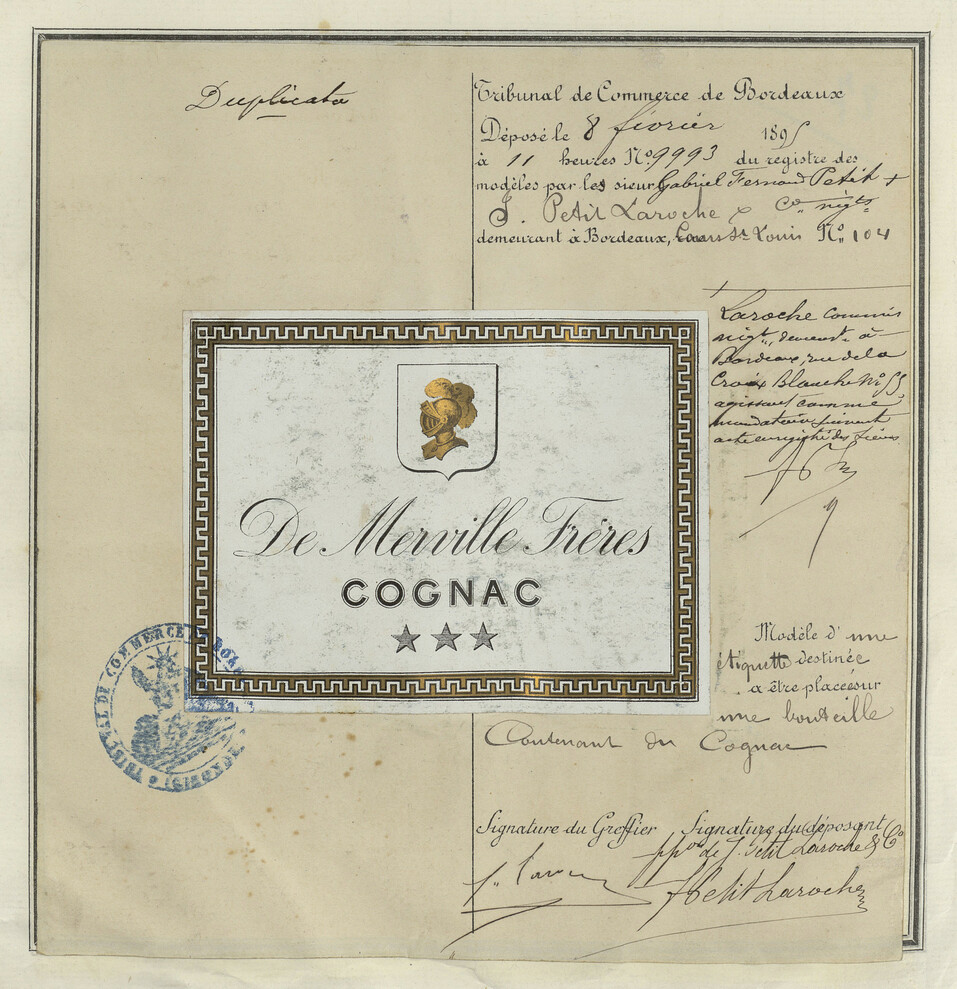 Duplicata
Tribunal de Commerce de Bordeaux
Déposé le 8 février 1895
à 11 heures No. 9993 du registre des
modèles par les sieur Gabriel Fernand Petit +
J. Petit Laroche & Co. nigts
demeurant à Bordeaux, Cours St Louis No. 104
Laroche commis
nigt, demeurt à
Bordeaux, rue de la
Croix Blanche No 55
agissant comme
mandataire suivant
acte enregistré des sieurs
De Merville Frères
COGNAC
★★★
TRIBUNAL DE COMMERCE DE BORDEAUX
Modèle d'une
étiquette destinée
a être placée sur
une bouteille
Contenant du Cognac
Signature du Greffier Signature du déposant
ppon de J. Petit Laroche & Co
Petit Laroche